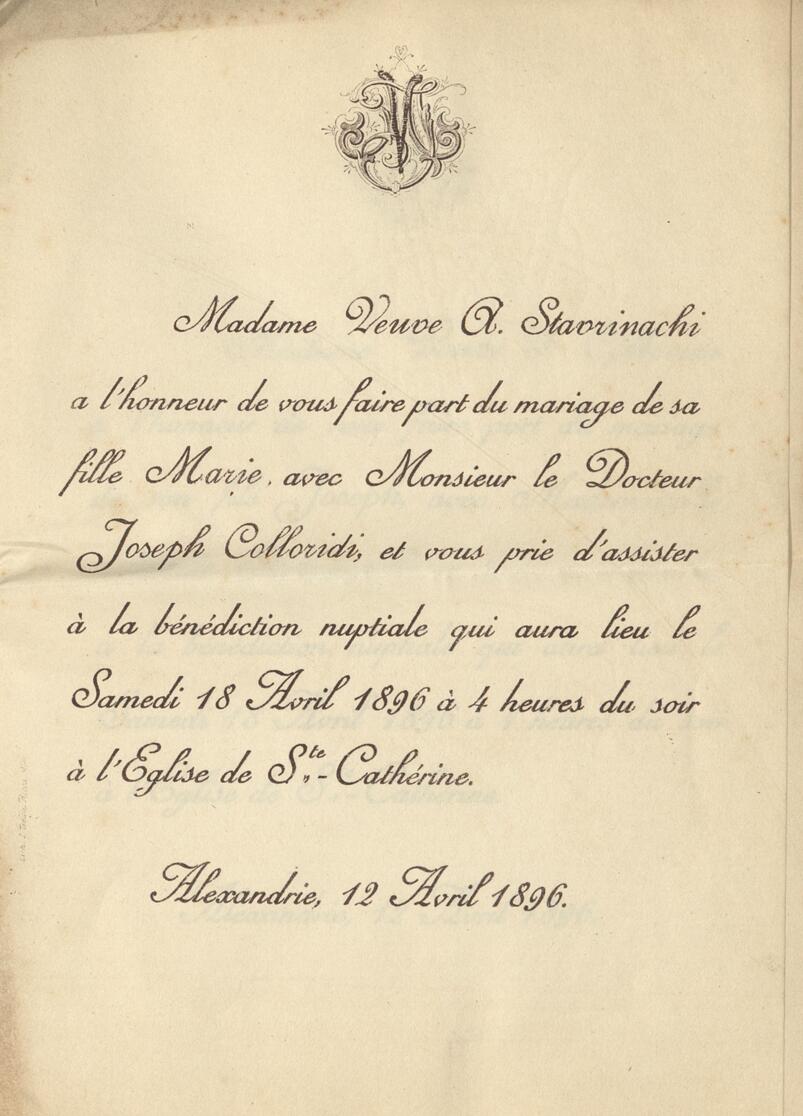 Madame Veuve A. Stavrinachi
a l'honneur de vous faire part du mariage de sa
fille Marie, avec Monsieur le Docteur
Joseph Colloridi, et vous prie d'assister
à la bénédiction nuptiale qui aura lieu le
Samedi 18 Avril 1896 à 4 heures du soir
à l'Eglise de Ste-Cathérine.
Alexandrie, 12 Avril 1896.